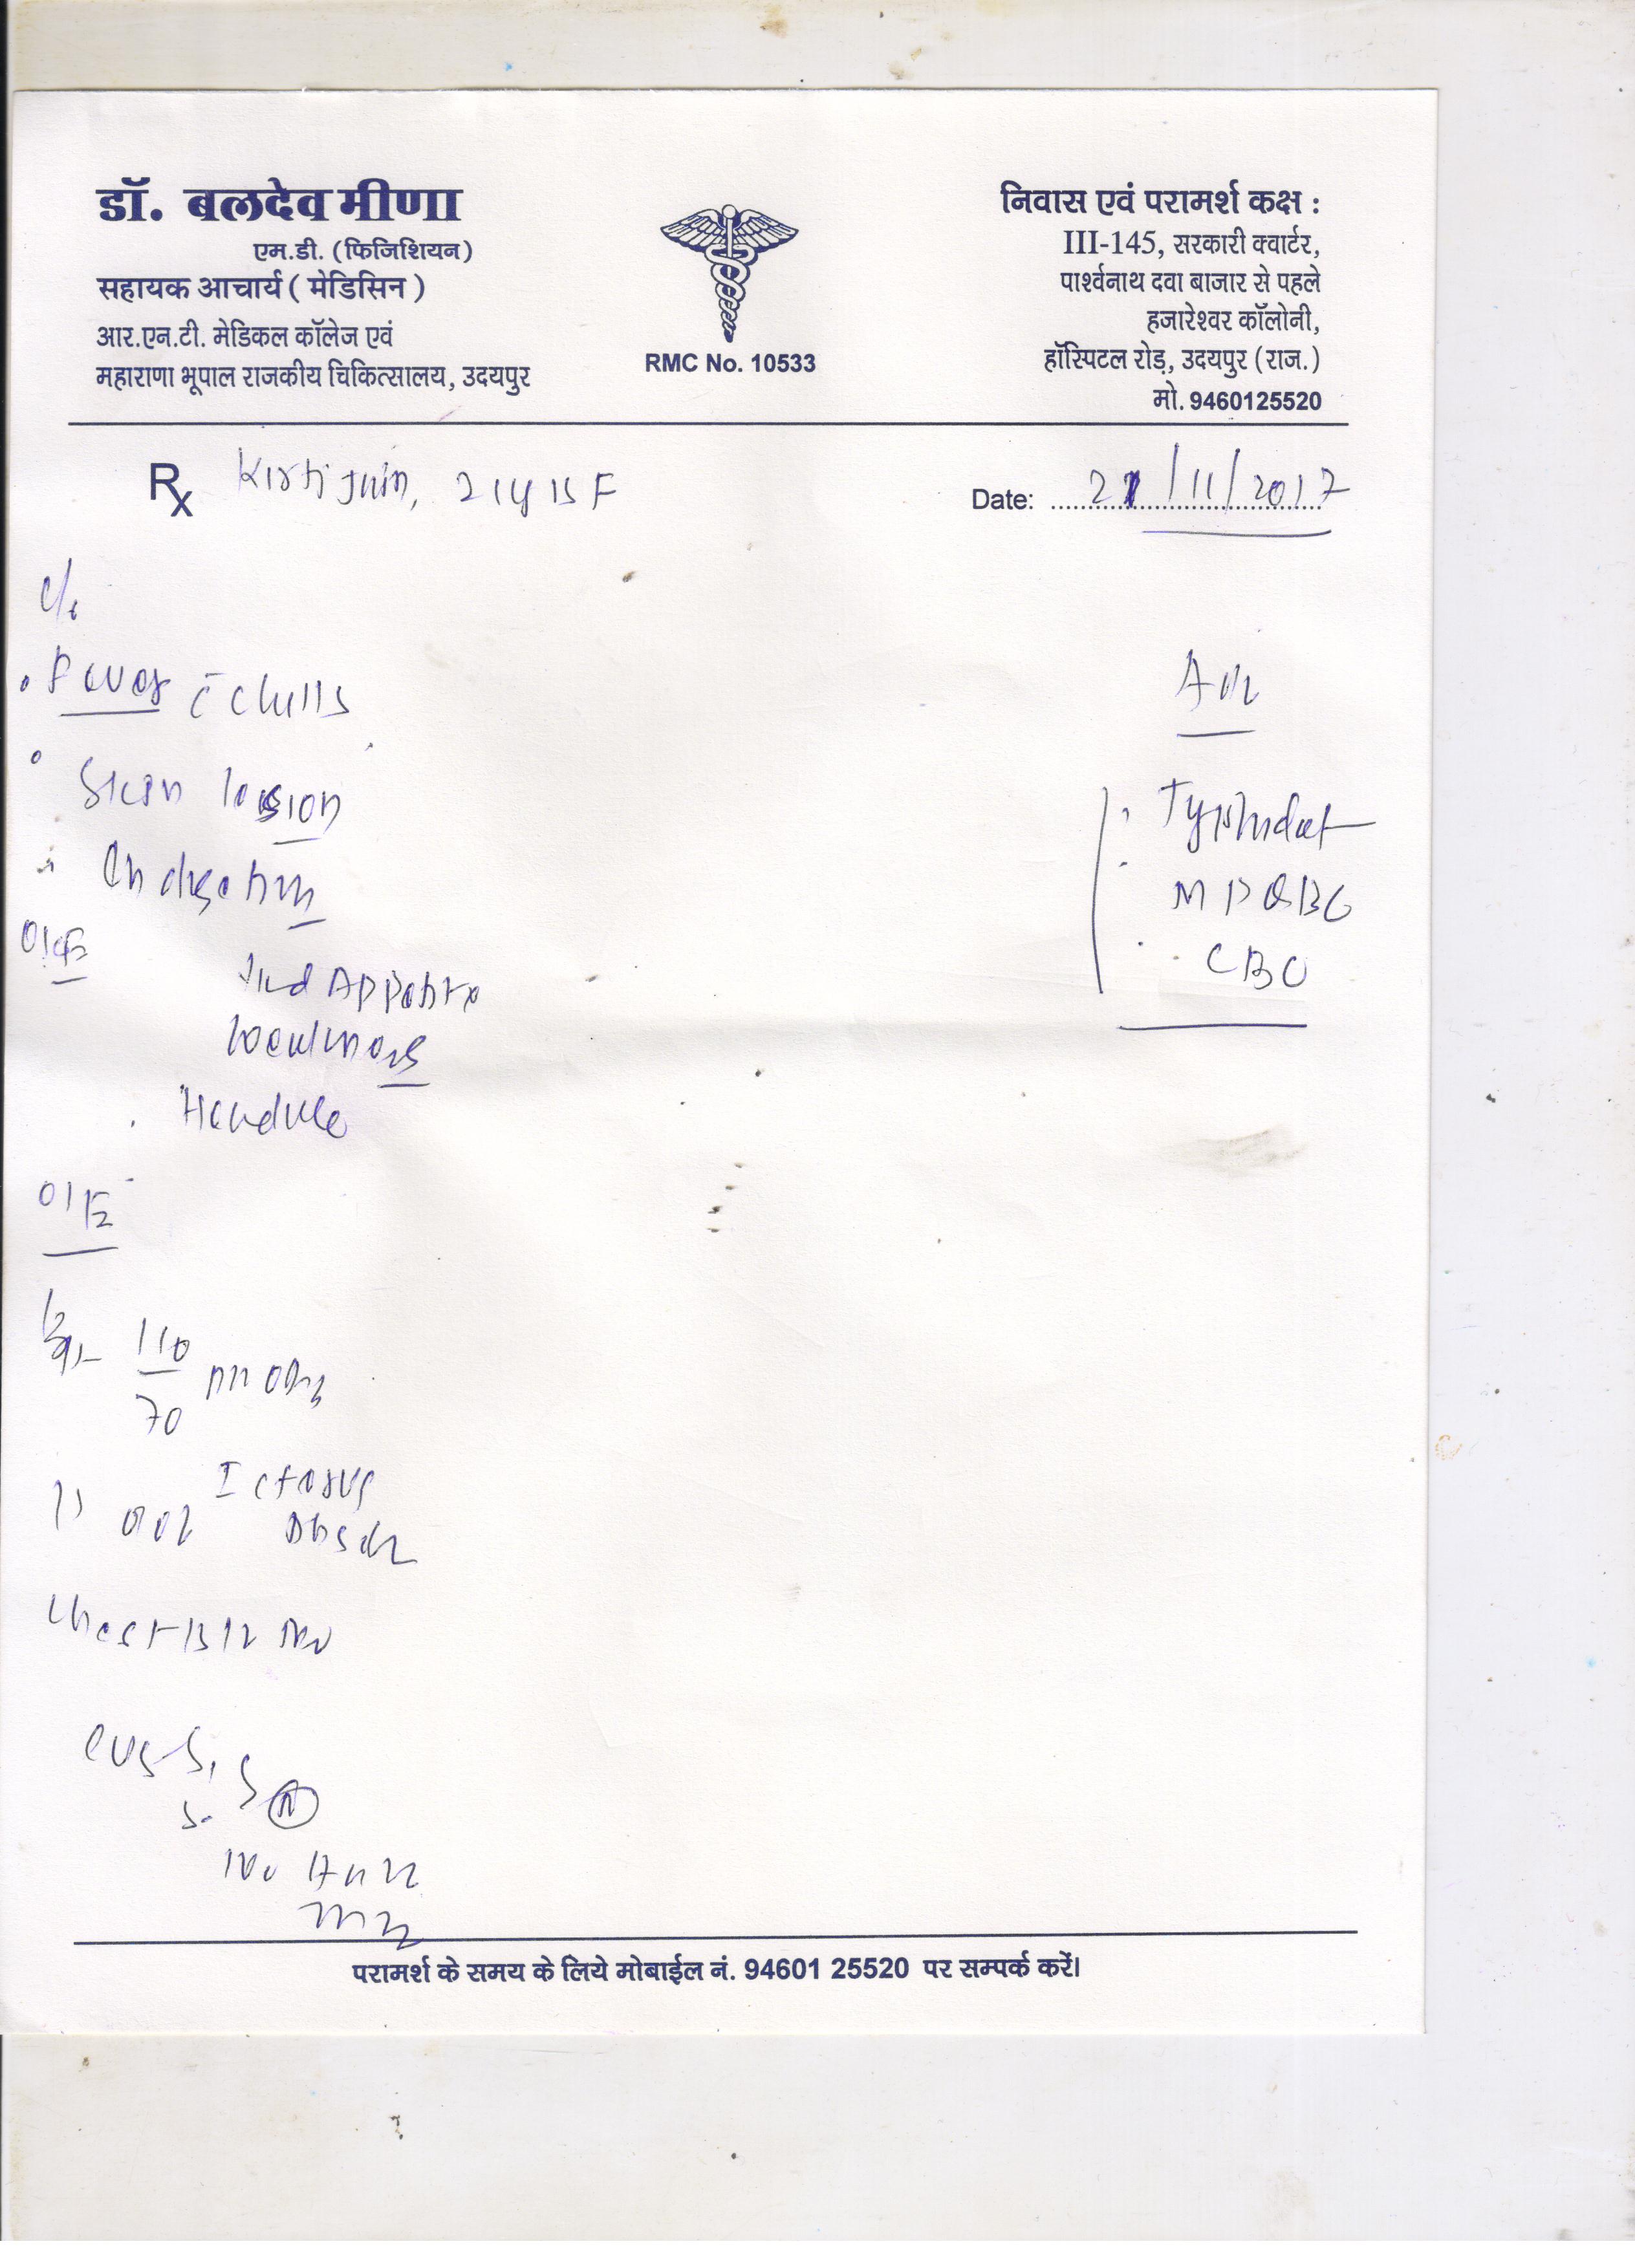 डॉ. बलदेव मीणा
एम.डी. (फिजिशियन)
सहायक आचार्य ( मेडिसिन )
आर.एन.टी. मेडिकल कॉलेज एवं
महाराणा भूपाल राजकीय चिकित्सालय, उदयपुर
RMC No. 10533
निवास एवं परामर्श कक्ष :
III-145, सरकारी क्वार्टर,
पार्श्वनाथ दवा बाजार से पहले
हजारेश्वर कॉलोनी,
हॉस्पिटल रोड़, उदयपुर (राज.)
मो. 9460125520
Rx Kirti Jain, 21 yrs F
Date: 21/11/2017
c/o
Fever c̄ chills
Skin lesion
O/E
weakness
Headache
O/E
110
70
Icterus
Chest
CVS S1
S2 N
No
Adv
Typhidot
MP QBC
CBC
परामर्श के समय के लिये मोबाईल नं. 94601 25520 पर सम्पर्क करें।